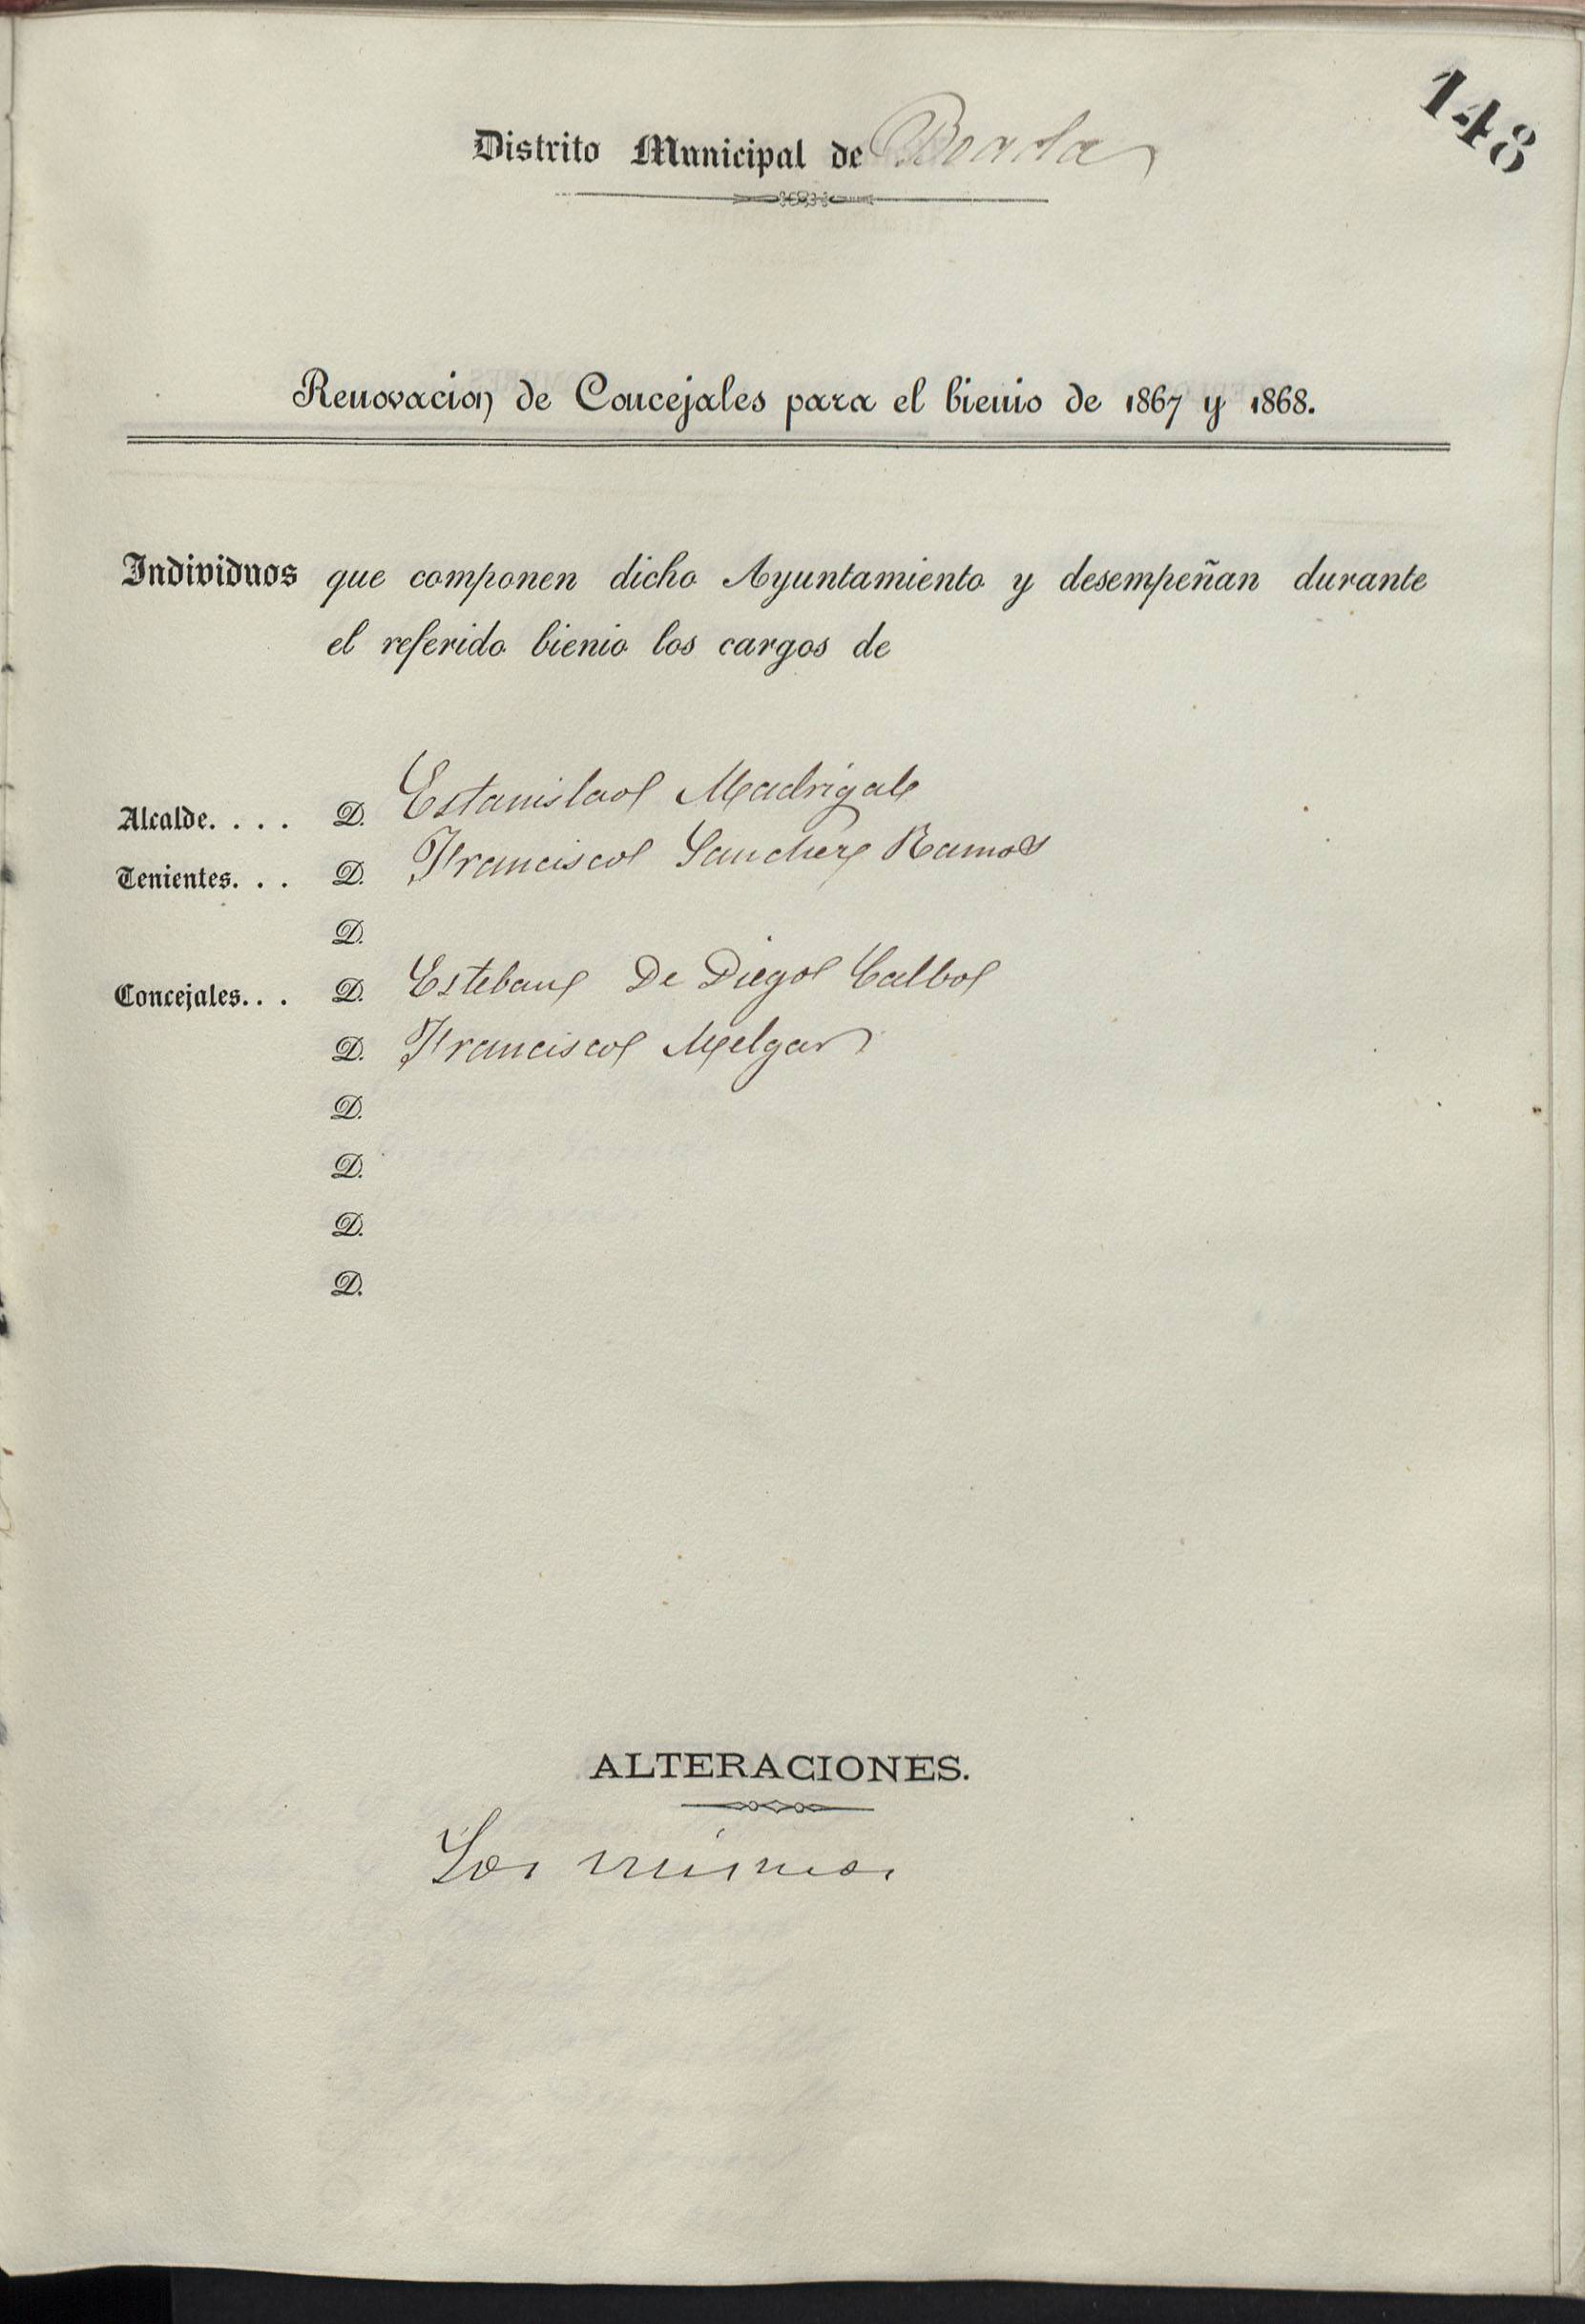 148
Distrito Municipal de Boada
Renovacion de Concejales para el bienio de 1867 y 1868.
Individuos que componen dicho Ayuntamiento y desempeñan durante
el referido bienio los cargos de
Alcalde. . . . D. Estanislao Madrigal
Tenientes. . . D. Francisco Sanchez Ramos
D.
Concejales. . . D. Esteban De Diego Calbo
D. Francisco Melgar
D.
D.
D.
D.
ALTERACIONES.
Los mismos